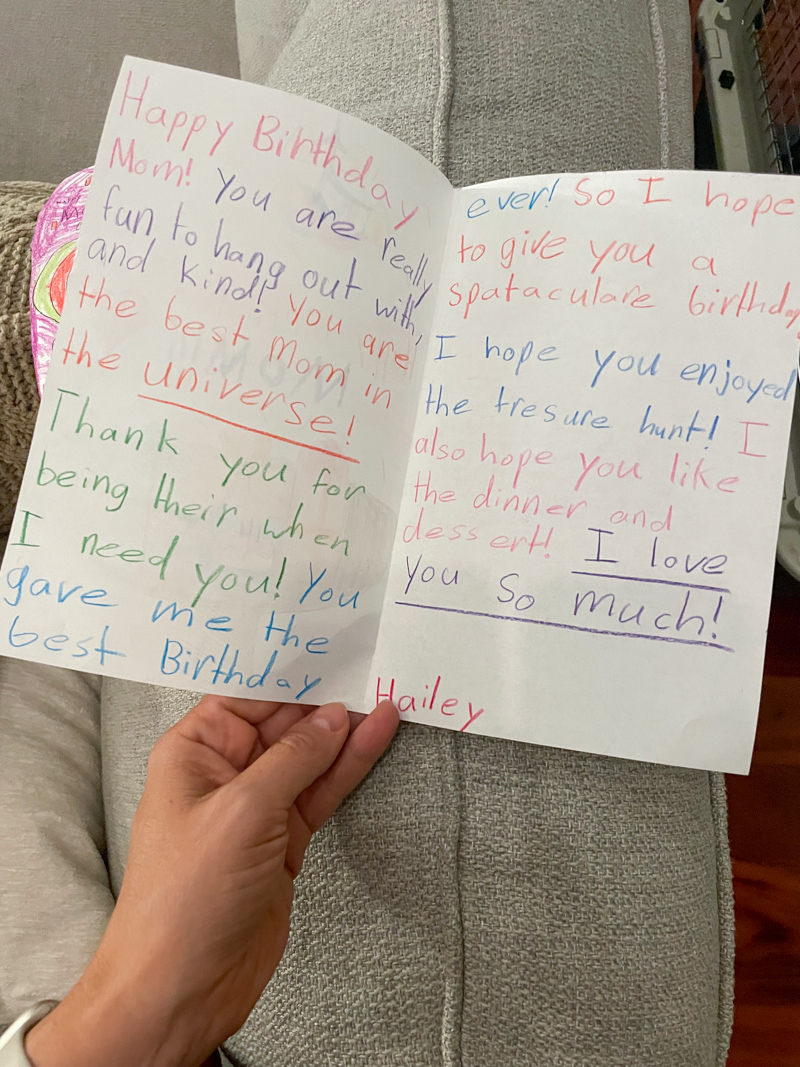 Happy Birthday
Mom! You are really
fun to hang out with,
and kind! You are
the best Mom in
the universe!
Thank you for
being their when
I need you! You
gave me the
best Birthday
ever! So I hope
to give you a
spataculare birthday
I hope you enjoyed
the tresure hunt! I
also hope you like
the dinner and
dessert! I love
you so much!
Hailey